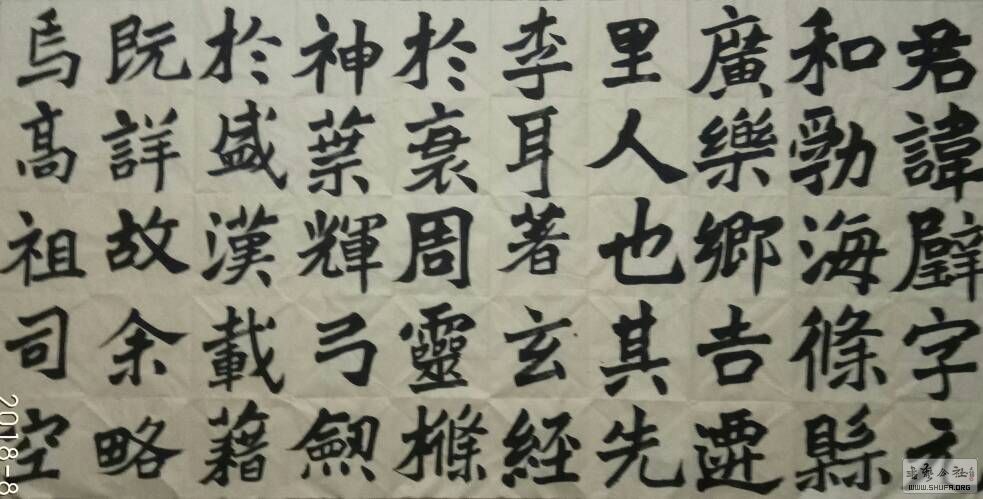 君諱璧字元
和勃海條縣
廣樂鄉吉遷
里人也其先
李耳著玄經
於衰周靈樤
神葉輝弓劒
於盛漢載藉
既詳故余略
焉高祖司空
2018-8
书艺公社
WWW.SHUFA.ORG